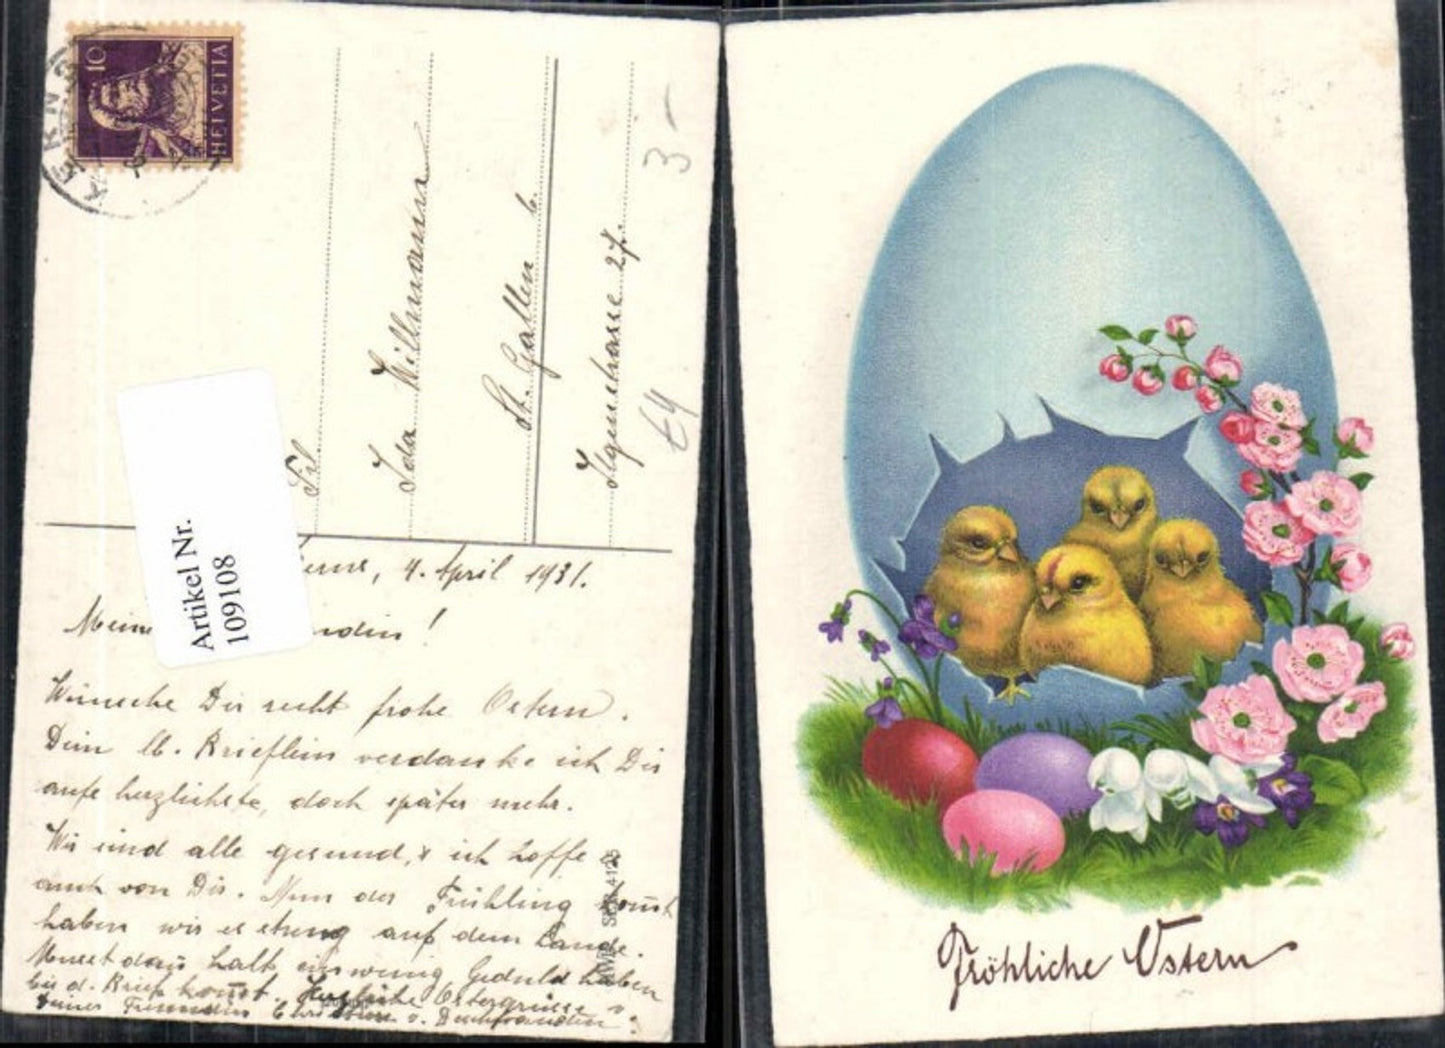 10
HELVETIA
KERNS
3-
Frl.
Ida Willmann
St. Gallen b.
Ilgenstrasse 27.
Artikel Nr.
109108
Kerns, 4. April 1931.
Meine
Wünsche Dir recht frohe Ostern.
Dein lb. Brieflein verdanke ich Dir
aufs herzlichste, doch später mehr.
Wir sind alle gesund, & ich hoffe es
auch von Dir. Nun der Frühling kommt
haben wir es streng auf dem Lande.
Musst dann halt ein wenig Geduld haben
bis d. Brief kommt. Herzliche Ostergrüsse v.
Deiner Freundin Christine v.
Fröhliche Ostern